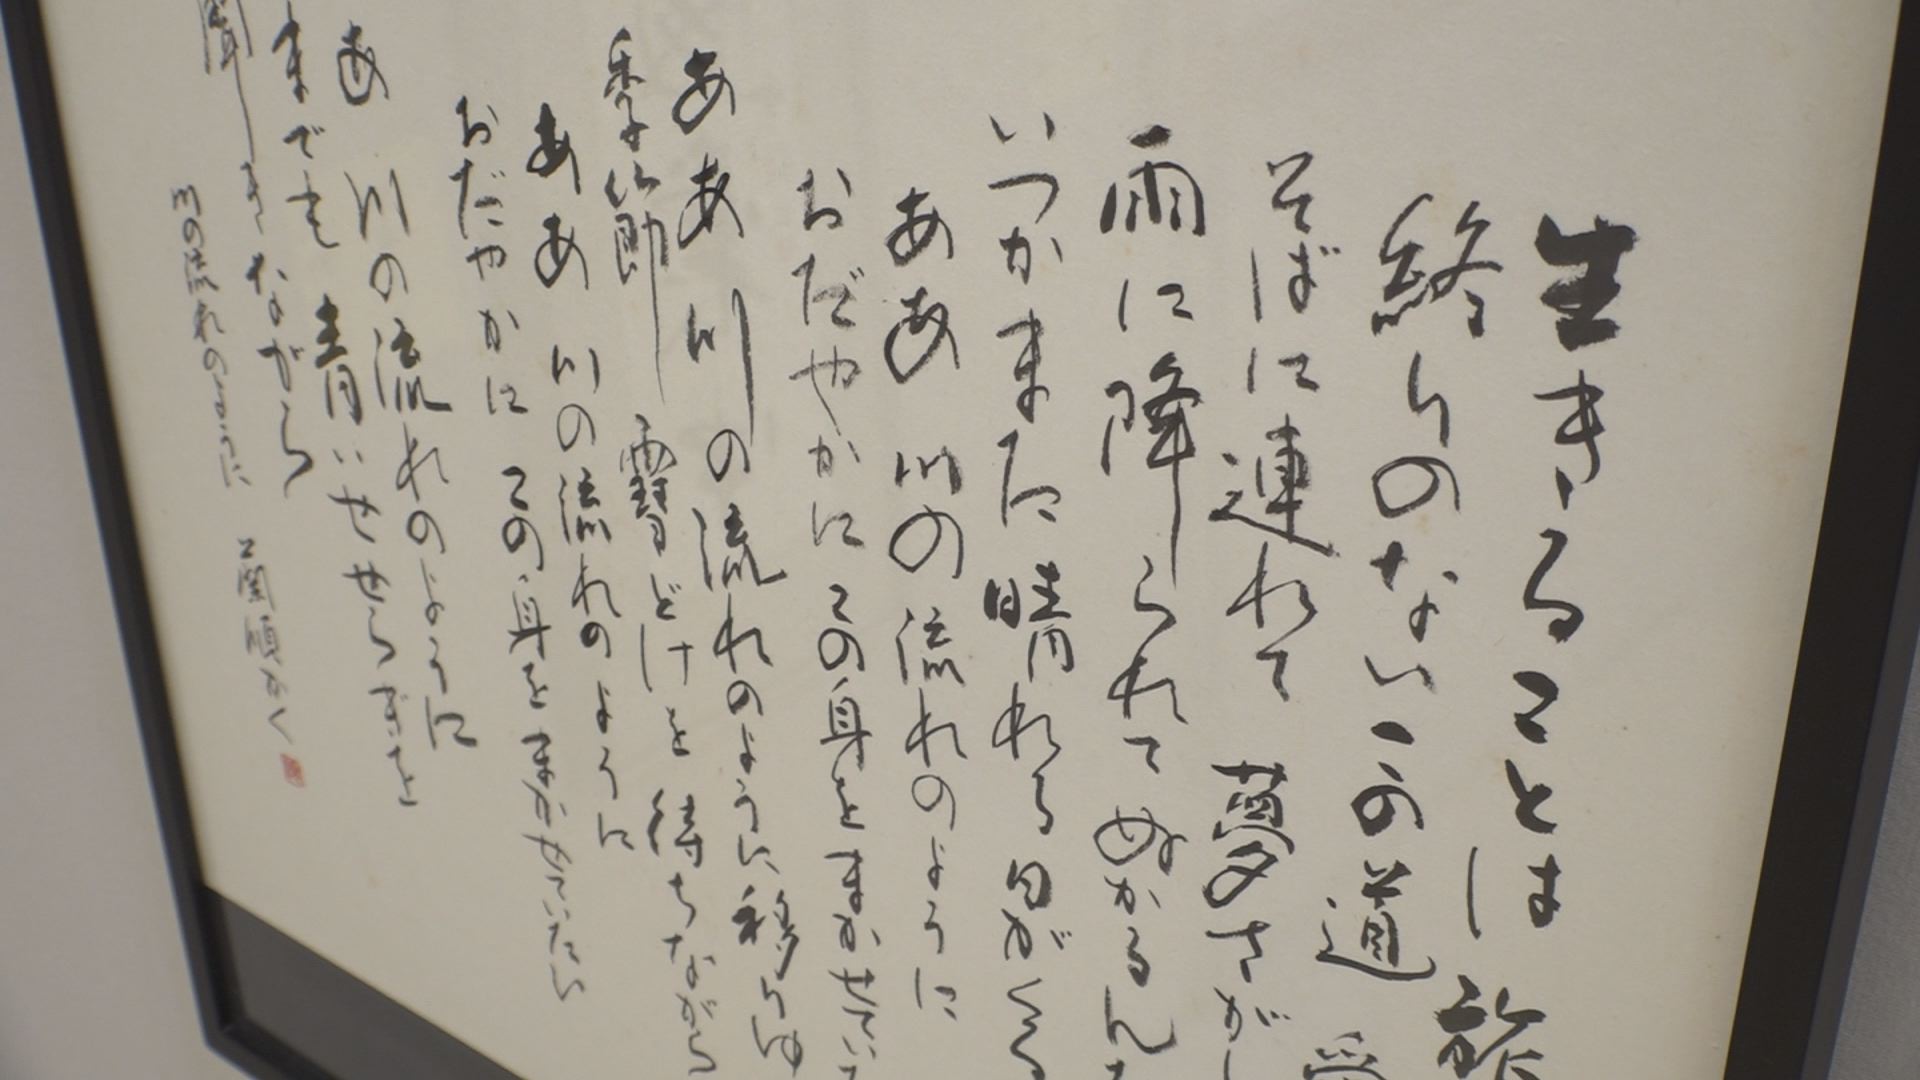 生きることは 旅
終りのない この道 愛
そばに連れて 夢さがし
雨に降られて ぬかるんだ
いつかまた 晴れる日がくる
ああ 川の流れのように
おだやかに この身をまかせてい
ああ 川の流れのように 移りゆ
季節 雪どけを 待ちながら
ああ 川の流れのように
おだやかに この身をまかせていたい
あ 川の流れのように
までも 青いせせらぎを
聞きながら
川の流れのように 二蘭順かく